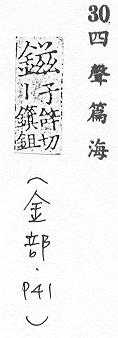 30 四聲篇海
鎡 子切 丨鉏
（金部．P41）